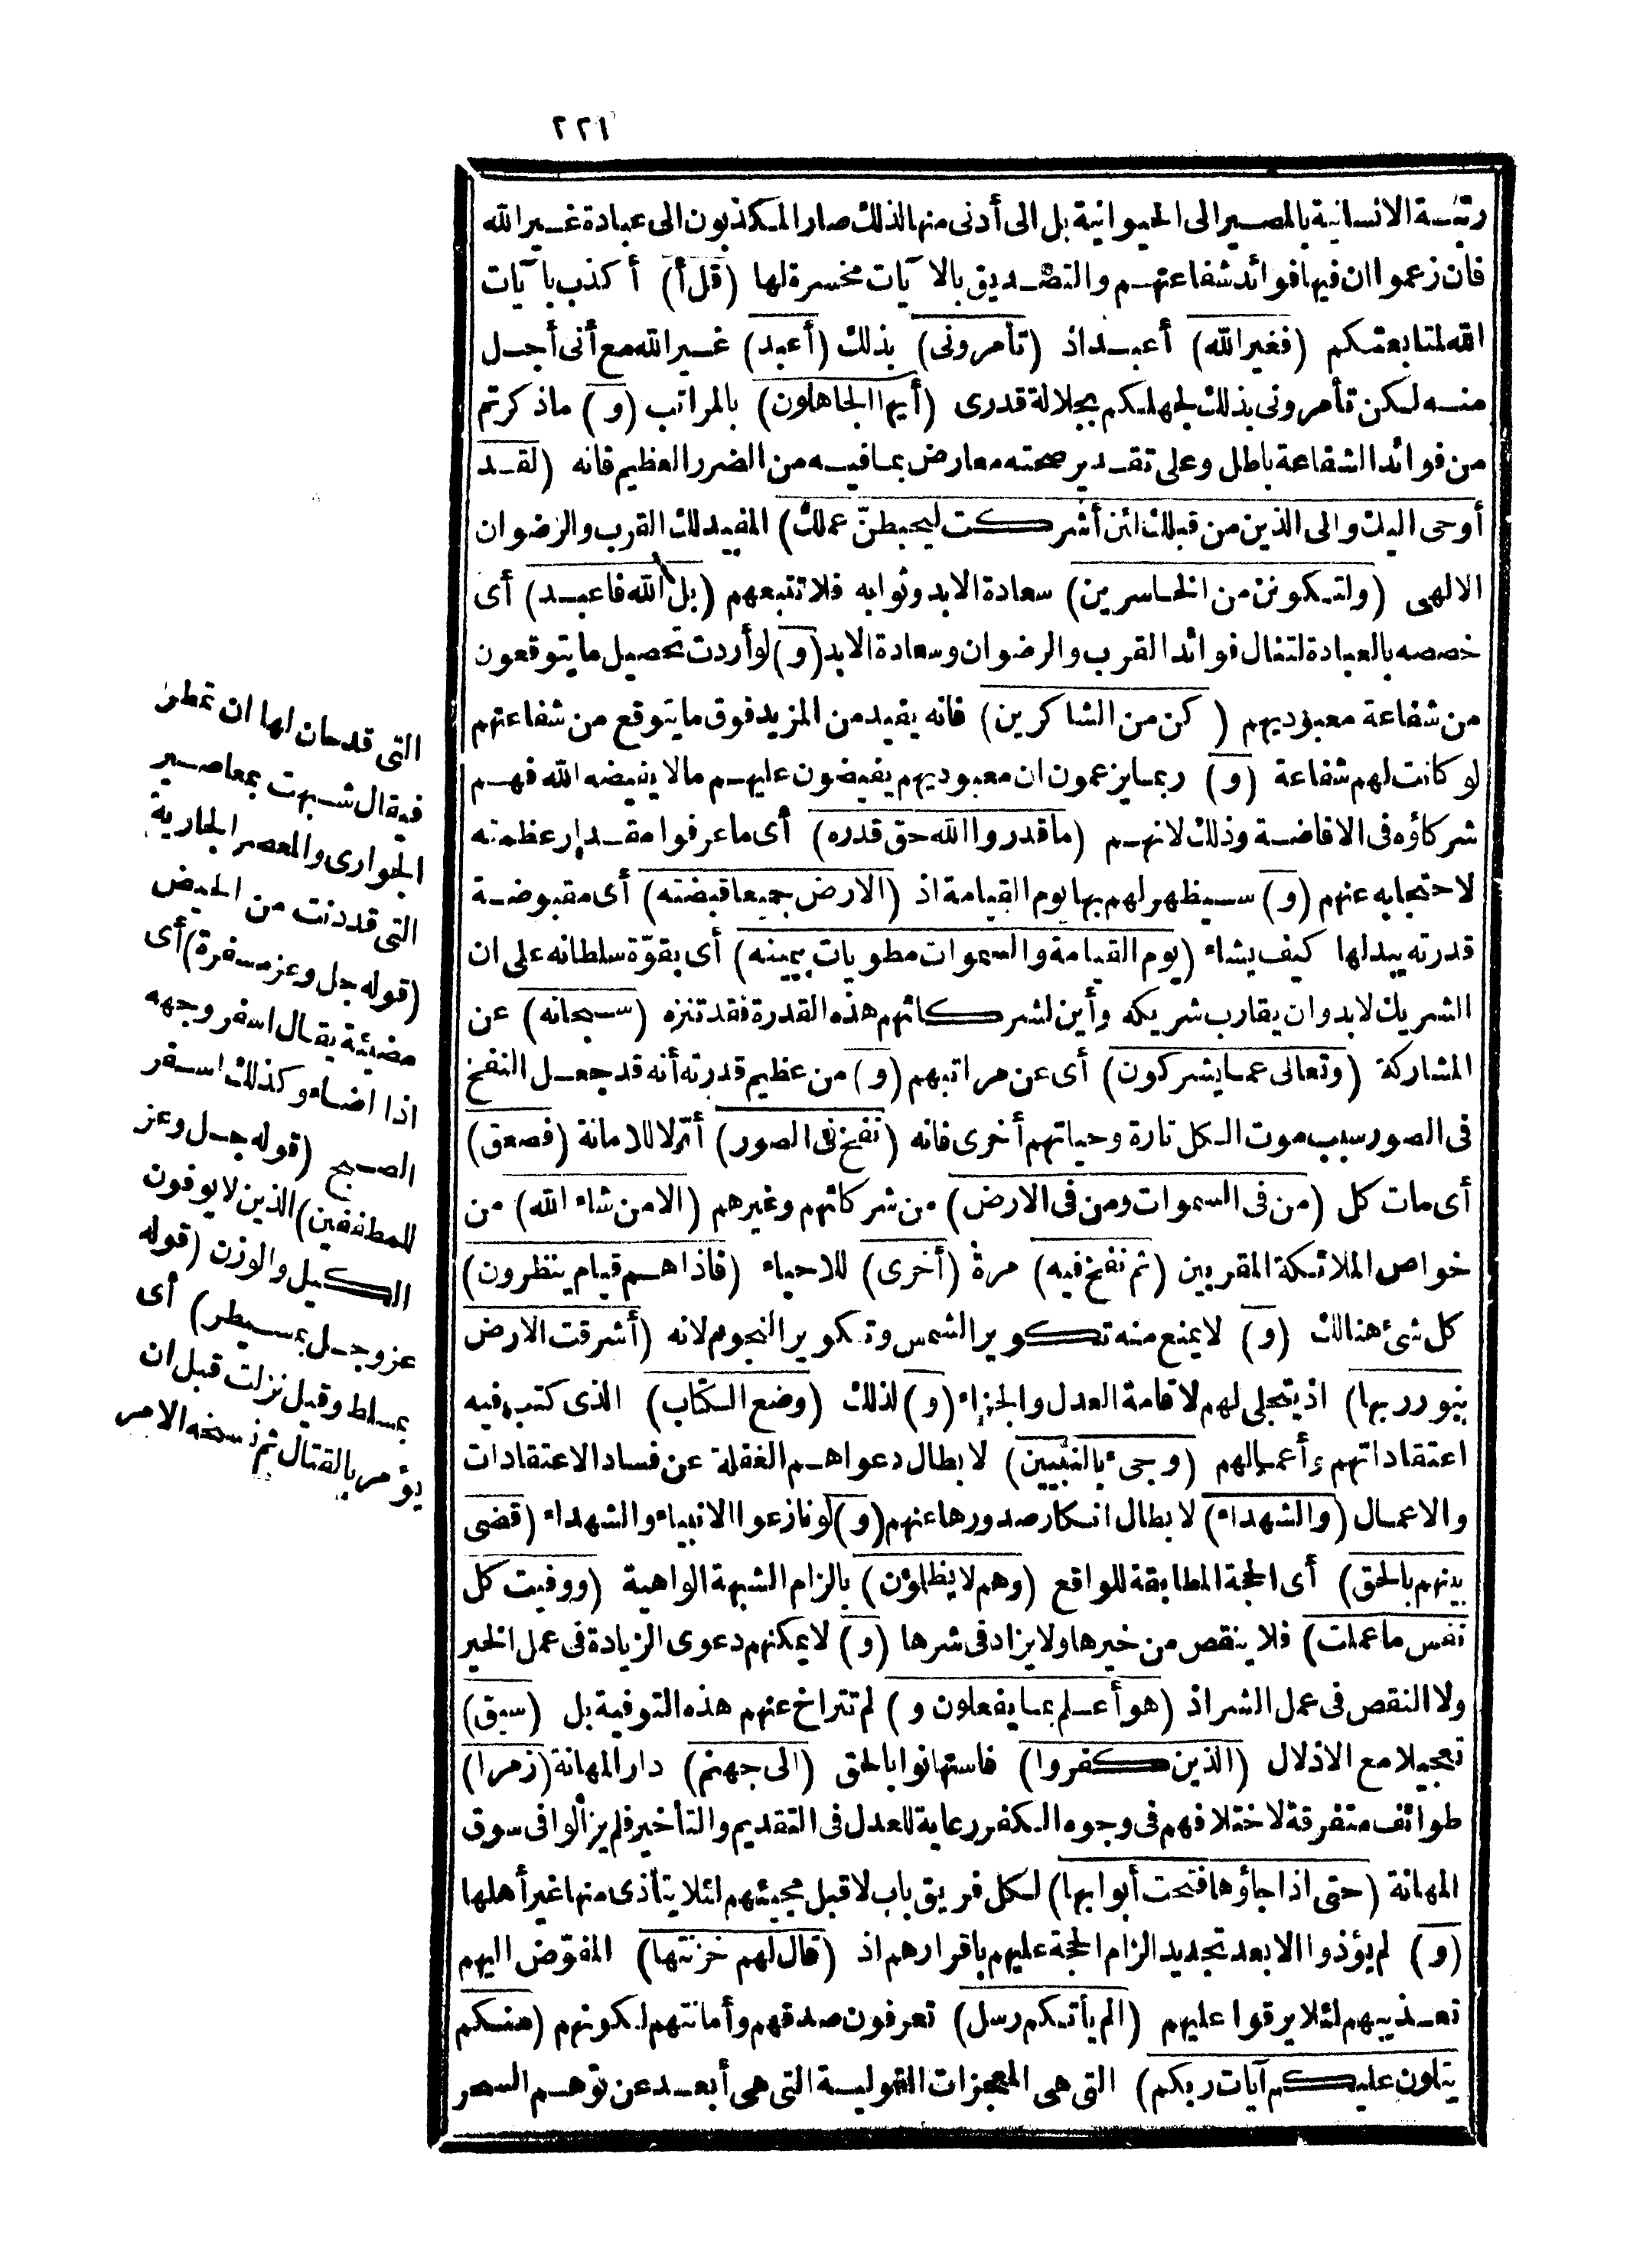 ٢٢١
رتبة الانسانية بالمصير الى الحيوانية بل الى أدنى منها لذلك صار المكذبون الى عبادة غير الله
فان زعموا ان فيها فوائد شفاعتهم والتصديق بالآيات مخسرة لها (قل أ) أكذب بآيات
الله لمتابعتكم (فغير الله) أعبد اذ (تأمرونى) بذلك (أعبد) غير الله مع أنى أجل
منه لكن تأمرونى بذلك لجهلكم بجلالة قدرى (أيها الجاهلون) بالمراتب (و) ماذكرتم
من فوائد الشفاعة باطل وعلى تقدير صحته معارض بما فيه من الضرر العظيم فانه (لقد
أوحى اليك والى الذين من قبلك لئن أشركت ليحبطنّ عملك) المفيد لك القرب والرضوان
الالهى (ولتكونن من الخاسرين) سعادة الابد وثوابه فلا تتبعهم (بل الله فاعبد) أى
خصصه بالعبادة لتنال فوائد القرب والرضوان وسعادة الابد (و) لو أردت تحصيل ما يتوقعون
من شفاعة معبوديهم (كن من الشاكرين) فانه يفيد من المزيد فوق ما يتوقع من شفاعتهم
لو كانت لهم شفاعة (و) ربما يزعمون ان معبوديهم يفيضون عليهم مالا يفيضه الله فهم
شركاؤه فى الافاضة وذلك لانهم (ماقدروا الله حق قدره) أى ماعرفوا مقدار عظمته
لاحتجابه عنهم (و) سيظهر لهم بها يوم القيامة اذ (الارض جميعا قبضته) أى مقبوضة
قدرته يبدلها كيف يشاء (يوم القيامة والسموات مطويات بيمينه) أى بقوّة سلطانه على ان
الشريك لابد وان يقارب شريكه وأين لشركائهم هذه القدرة فقد تنزه (سبحانه) عن
المشاركة (وتعالى عما يشركون) أى عن مراتبهم (و) من عظيم قدرته أنه قد جعل النفخ
فى الصور سبب موت الكل تارة وحياتهم أخرى فانه (نفخ فى الصور) أوّلا للاماتة (فصعق)
أى مات كل (من فى السموات ومن فى الارض) من شركائهم وغيرهم (الا من شاء الله) من
خواص الملائكة المقربين (ثم نفخ فيه) مرة (أخرى) للاحياء (فاذاهم قيام ينظرون)
كل شئ هنالك (و) لا يمنع منه تكوير الشمس وتكوير النجوم لانه (أشرقت الارض
بنور ربها) اذ يتجلى لهم لاقامة العدل والجزاء (و) لذلك (وضع الكتاب) الذى كتب فيه
اعتقاداتهم وأعمالهم (وجىء بالنبيين) لابطال دعواهم الغفلة عن فساد الاعتقادات
والاعمال (والشهداء) لابطال انكار صدورها عنهم (و) لو نازعوا الانبياء والشهداء (قضى
بينهم بالحق) أى الحجة المطابقة للواقع (وهم لا يظلمون) بالزام الشبهة الواهية (ووفيت كل
نفس ماعملت) فلا ينقص من خيرها ولا يزاد فى شرها (و) لا يمكنهم دعوى الزيادة فى عمل الخير
ولا النقص فى عمل الشر اذ (هو أعلم بما يفعلون و) لم تتراخ عنهم هذه التوفية بل (سيق)
تعجيلا مع الاذلال (الذين كفروا) فاستهانوا بالحق (الى جهنم) دار المهانة (زمرا)
طوائف متفرقة لاختلافهم فى وجوه الكفر رعاية للعدل فى التقديم والتأخير فلم يزالوا فى سوق
المهانة (حتى اذا جاؤها فتحت أبوابها) لكل فريق باب لا قبل مجيئهم لئلا يتأذى منها غير أهلها
(و) لم يؤذوا الا بعد تجديد الزام الحجة عليهم باقرارهم اذ (قال لهم خزنتها) المفوّض اليهم
تعذيبهم لئلا يرقوا عليهم (الم يأتكم رسل) تعرفون صدقهم وأمانتهم لكونهم (منكم
يتلون عليكم آيات ربكم) التى هى المعجزات القولية التى هى أبعد عن توهم السحر
التى قد حان لها ان تمطر
فيقال شبهت بمعاصير
الجوارى والمعصر الجارية
التى قد دنت من الحيض
(قوله جل وعز مسفرة) أى
مضيئة يقال اسفر وجهه
اذا اضاء وكذلك اسفر
الصبح (قوله جل وعز
للمطففين) الذين لا يوفون
الكيل والوزن (قوله
عز وجل بمسيطر) أى
بمسلط وقيل نزلت قبل ان
يؤمر بالقتال ثم نسخه الامر